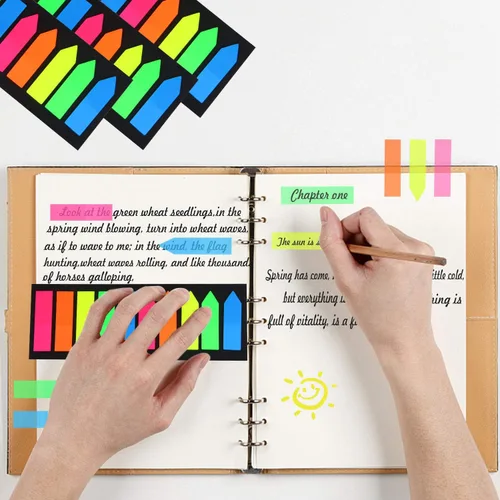 Look at the green wheat seedlings,in the
spring wind blowing, turn into wheat waves,
as if to wave to me; in the wind, the flag
hunting,wheat waves rolling, and like thousand
of horses galloping.
Chapter one
The sun is
Spring has come, little cold,
but everything is
full of vitality, is a